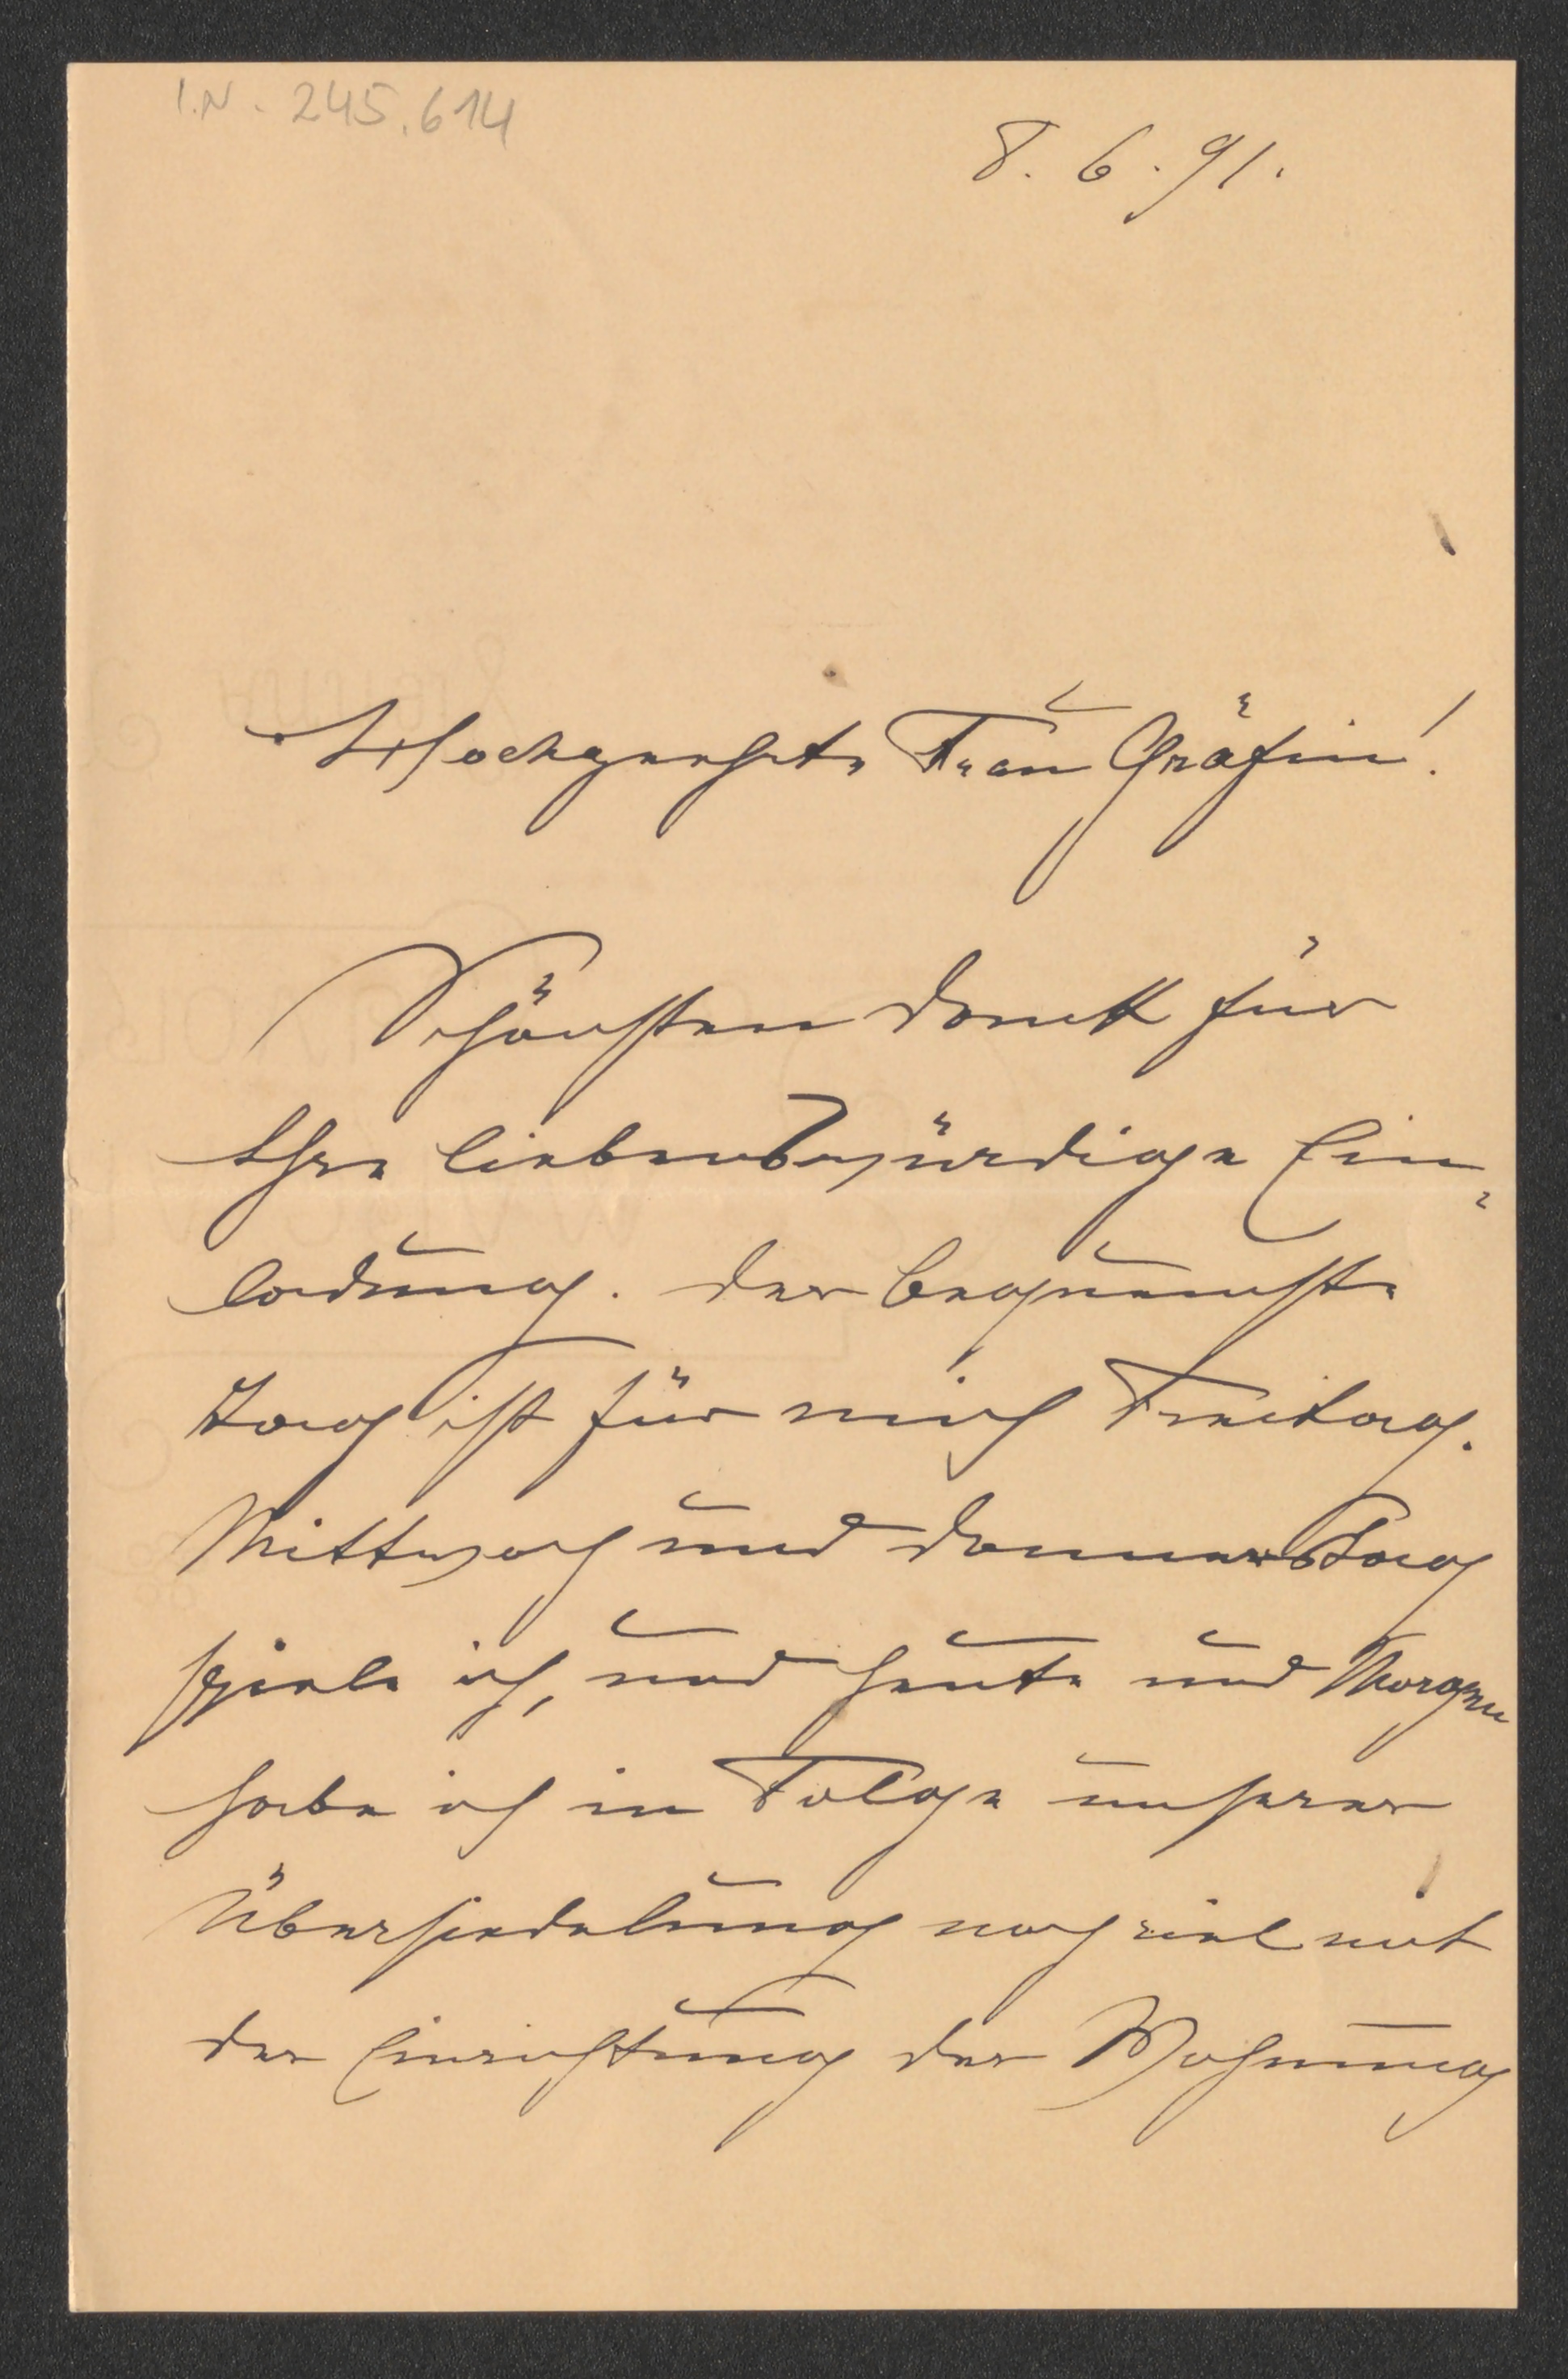 I.N. 245.614
8. 6. 91.
Hochgeehrte Frau Gräfin!
Schönsten Dank für
Ihre liebenswürdige Ein-
ladung. Der bequemste
Tag ist für mich Freitag.
Mittwoch und Donnerstag
spiele ich, und heute und Morgen
habe ich in Folge unserer
Übersiedelung noch viel mit
der Einrichtung der Wohnung